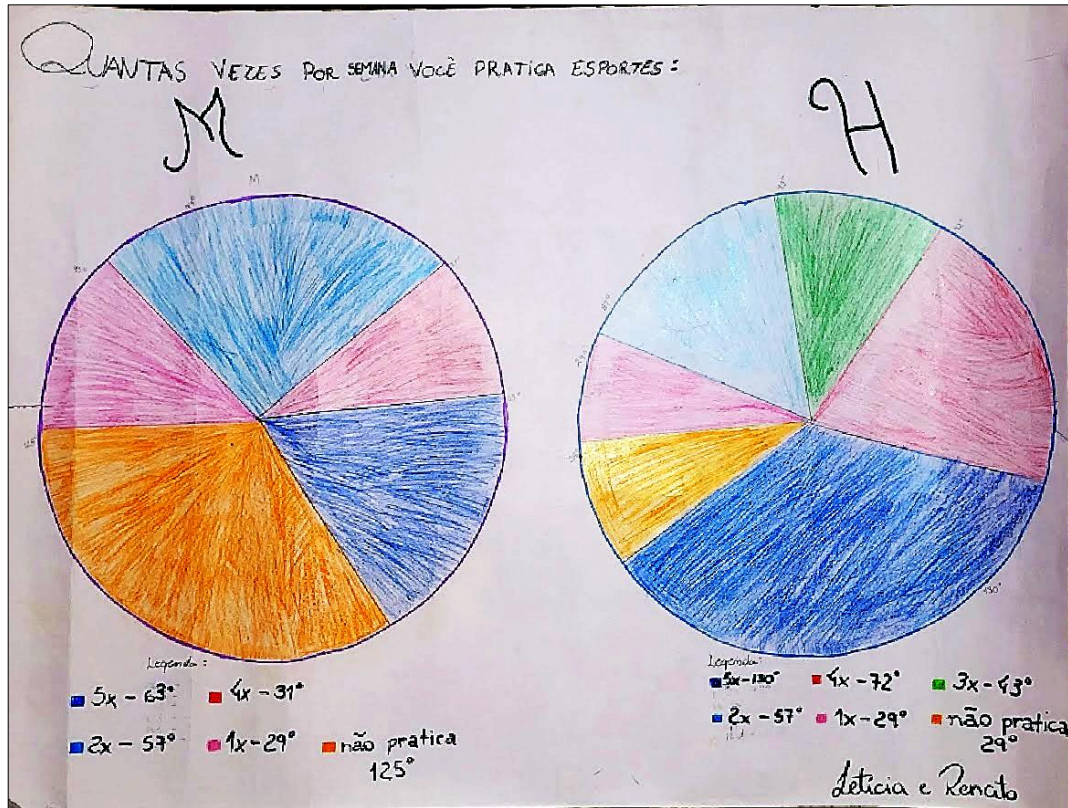 QUANTAS VEZES POR SEMANA VOCÊ PRATICA ESPORTES:
M
H
M
Legenda:
5x - 63°
4x - 31°
2x - 57°
1x - 29°
não pratica
125°
Legenda:
5x - 130°
4x - 72°
3x - 43°
2x - 57°
1x - 29°
não pratica
29°
130°
Letícia e Renato